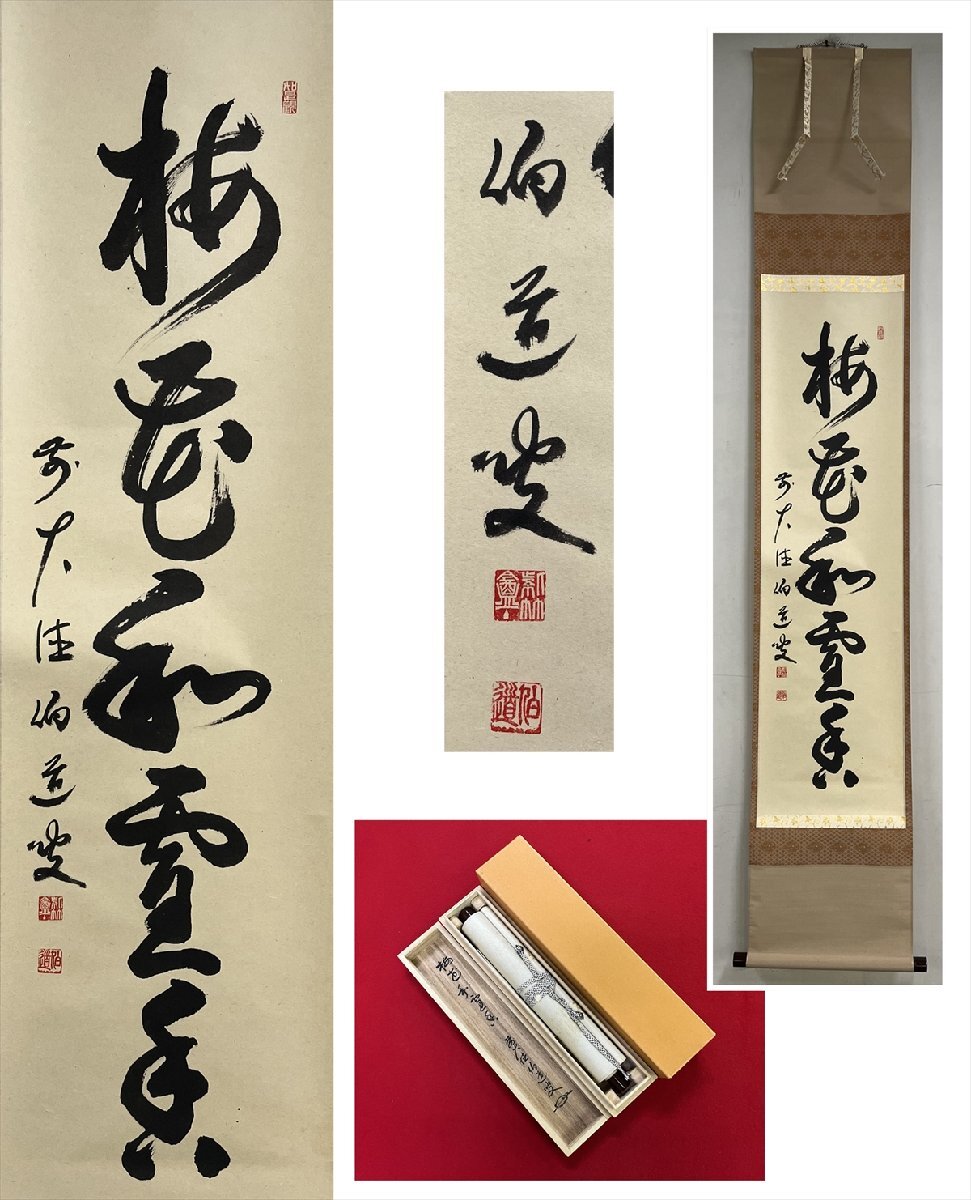 梅花和雪香
前大徳伯道叟
伯道叟
伯道
梅花和雪香
前大徳伯道叟
梅花和雪香 前大徳伯道叟